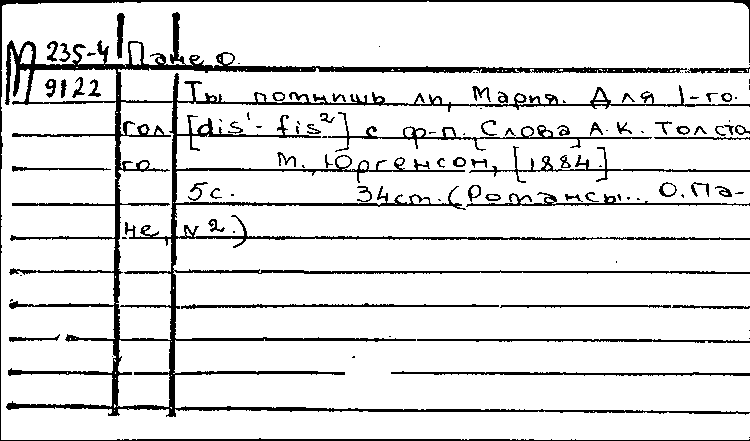 П 235-4 Пане О.
9122 Ты помнишь ли, Мария. Для 1-го
гол. [dis¹-fis²] с ф-п. [Слова] А.К. Толсто
го. М., Юргенсон, [1884.]
5с. 34см. (Романсы... О. Па-
не, № 2.)